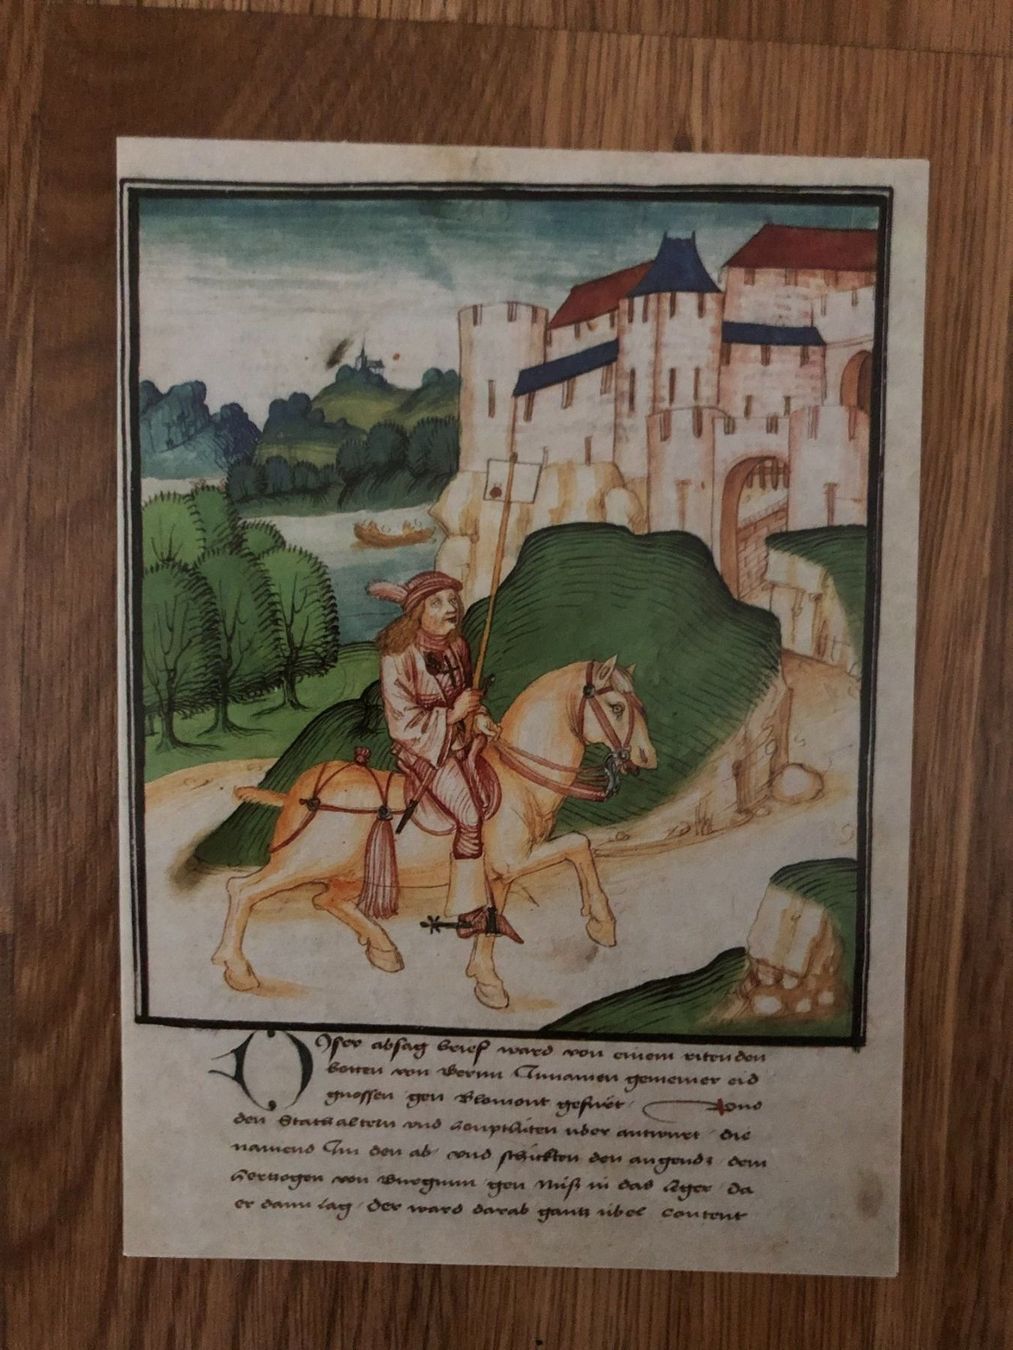 Diser absag brief ward von einem ritenden
botten von Bernn Jnnamen gemeiner eid
gnossen gen Blomont gefürt Vnd
den Stathaltern vnd houptlüten über antwurt die
namend Jm den ab vnd schickten den angends dem
Hertzogen von Burgunn gen Nüß in das leger da
er dann lag der ward darab gantz übel content